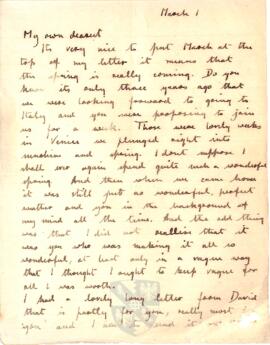 March 1
My own dearest
Its very nice to put March at the
top of my letter it means that
the spring is really coming. Do you
know its only three years ago that
we were looking forward to going to
Italy and you were proposing to join
us for a week. Those were lovely weeks
in Venice we plunged right into
sunshine and spring. I dont suppose I
shall ever again spend quite such a wonderful
spring. And then when we came home
it was still just so wonderful, perfect
weather and you in the background of
my mind all the time. And the odd thing
was that I did not realise that it
was you who was making it all so
wonderful, at least only in a vague way
that I thought I ought to keep vague for
all I was worth.
I had a lovely long letter from David
that is partly for you, really most